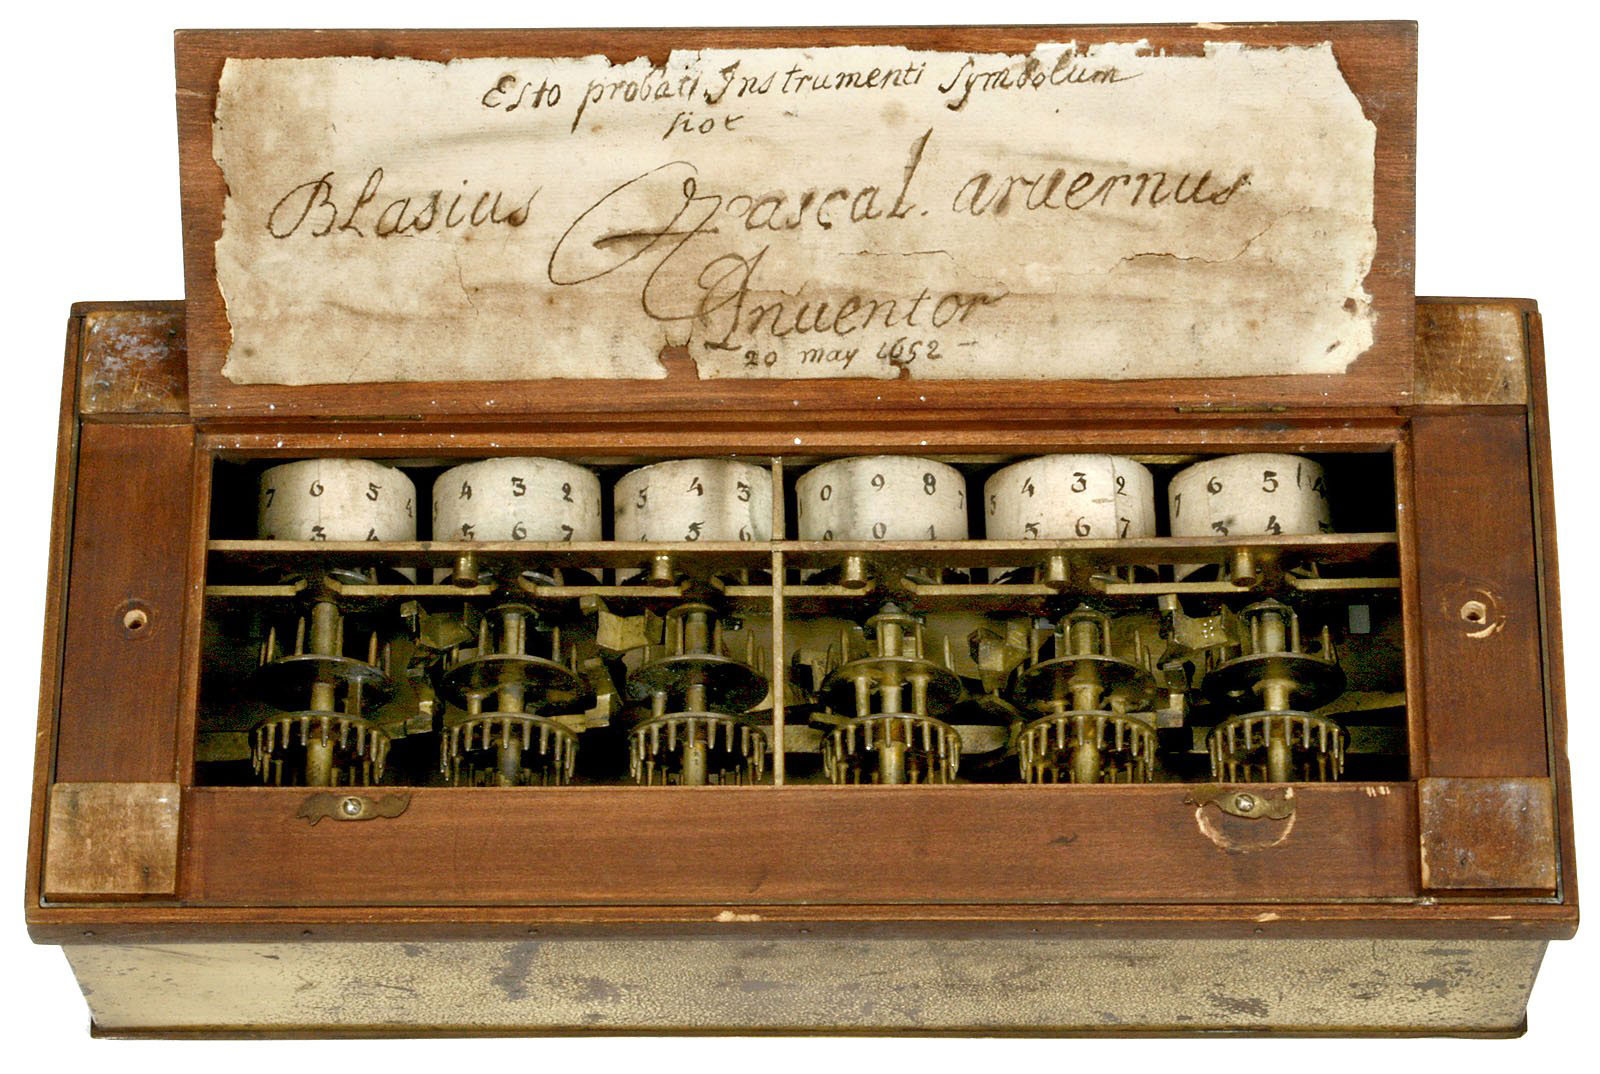 Esto probati Instrumenti Symbolum
hoc
Blasius Pascal. aruernus
Inuentor
20 may 1652
7 6 5 4
3 4
4 3 2 1
5 6 7
5 4 3
5 6
0 9 8 7
9 0 1
5 4 3 2
5 6 7
7 6 5 4
3 4